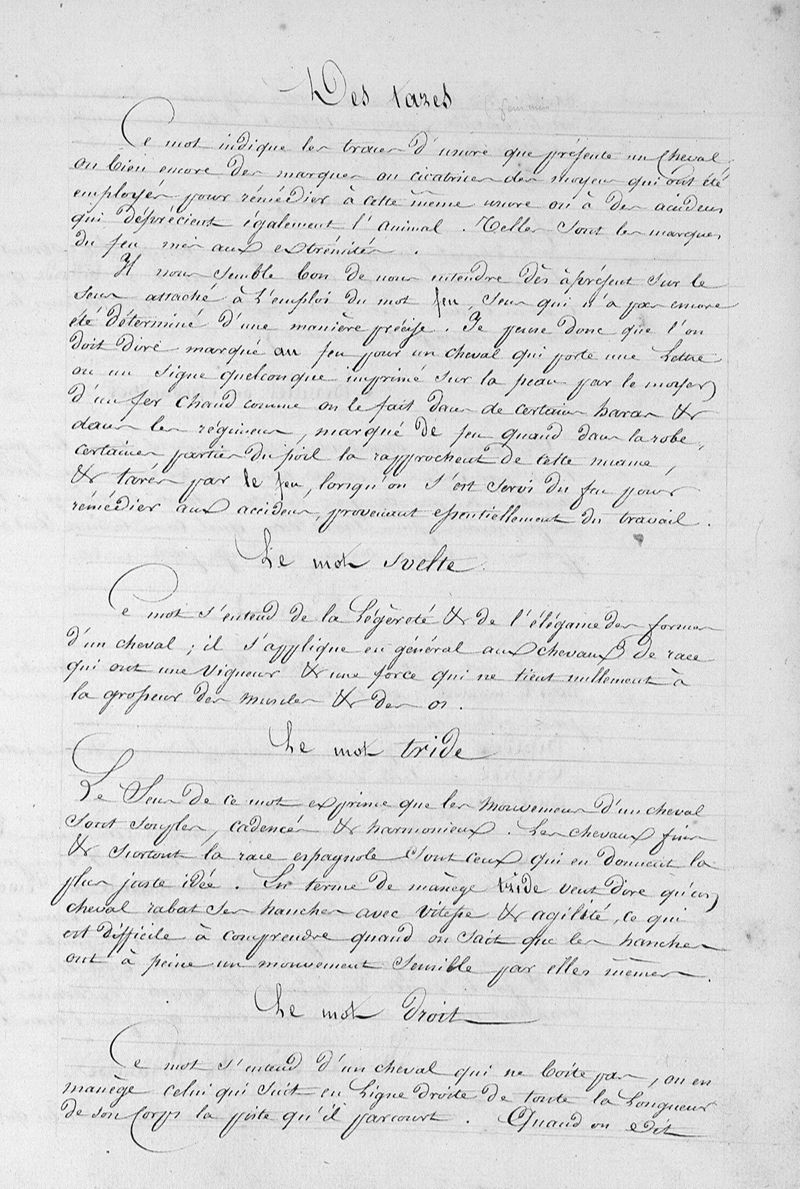 Des tares
Ce mot indique les traces d'usure que présente un cheval
ou bien encore des marques ou cicatrices des moyens qui ont été
employés pour rémédier à cette même usure ou à des accidens
qui déprécient également l'animal. Telles sont les marques
du feu mis aux extrémités.
Il nous semble bon de nous entendre dès àprésent sur le
sens attaché à l'emploi du mot feu, sens qui n'a pas encore
été déterminé d'une manière précise. Je pense donc que l'on
doit dire marqué au feu pour un cheval qui porte une Lettre
ou un signe quelconque imprimé sur la peau par le moyen
d'un fer chaud comme on le fait dans de certains haras &
dans les régimens, marqué de feu quand dans la robe,
certaines parties du poil la rapprochent de cette nuance,
& tarés par le feu, lorsqu'on s'est servi du feu pour
rémédier aux accidens, provenant essentiellement du travail.
Le mot svelte.
Ce mot s'entend de la Légèreté & de l'élégance des formes
d'un cheval ; il s'applique en général aux chevaux de race
qui ont une vigueur & une force qui ne tient nullement à
la grosseur des muscles & des os.
Le mot tride
Le Sens de ce mot exprime que les mouvemens d'un cheval
sont souples, cadencés & harmonieux. Les chevaux fins
& surtout la race espagnole sont ceux qui en donnent la
plus juste idée. En terme de manège tride veut dire qu'un
cheval rabat ses hanches avec vitesse & agilité, ce qui
est difficile à comprendre quand on sait que les hanches
ont à peine un mouvement sensible par elles mêmes.
Le mot droit
Ce mot s'entend d'un cheval qui ne boite pas, ou en
manège celui qui suit en Ligne droite de toute la Longueur
de son Corps la piste qu'il parcourt. Quand on dit